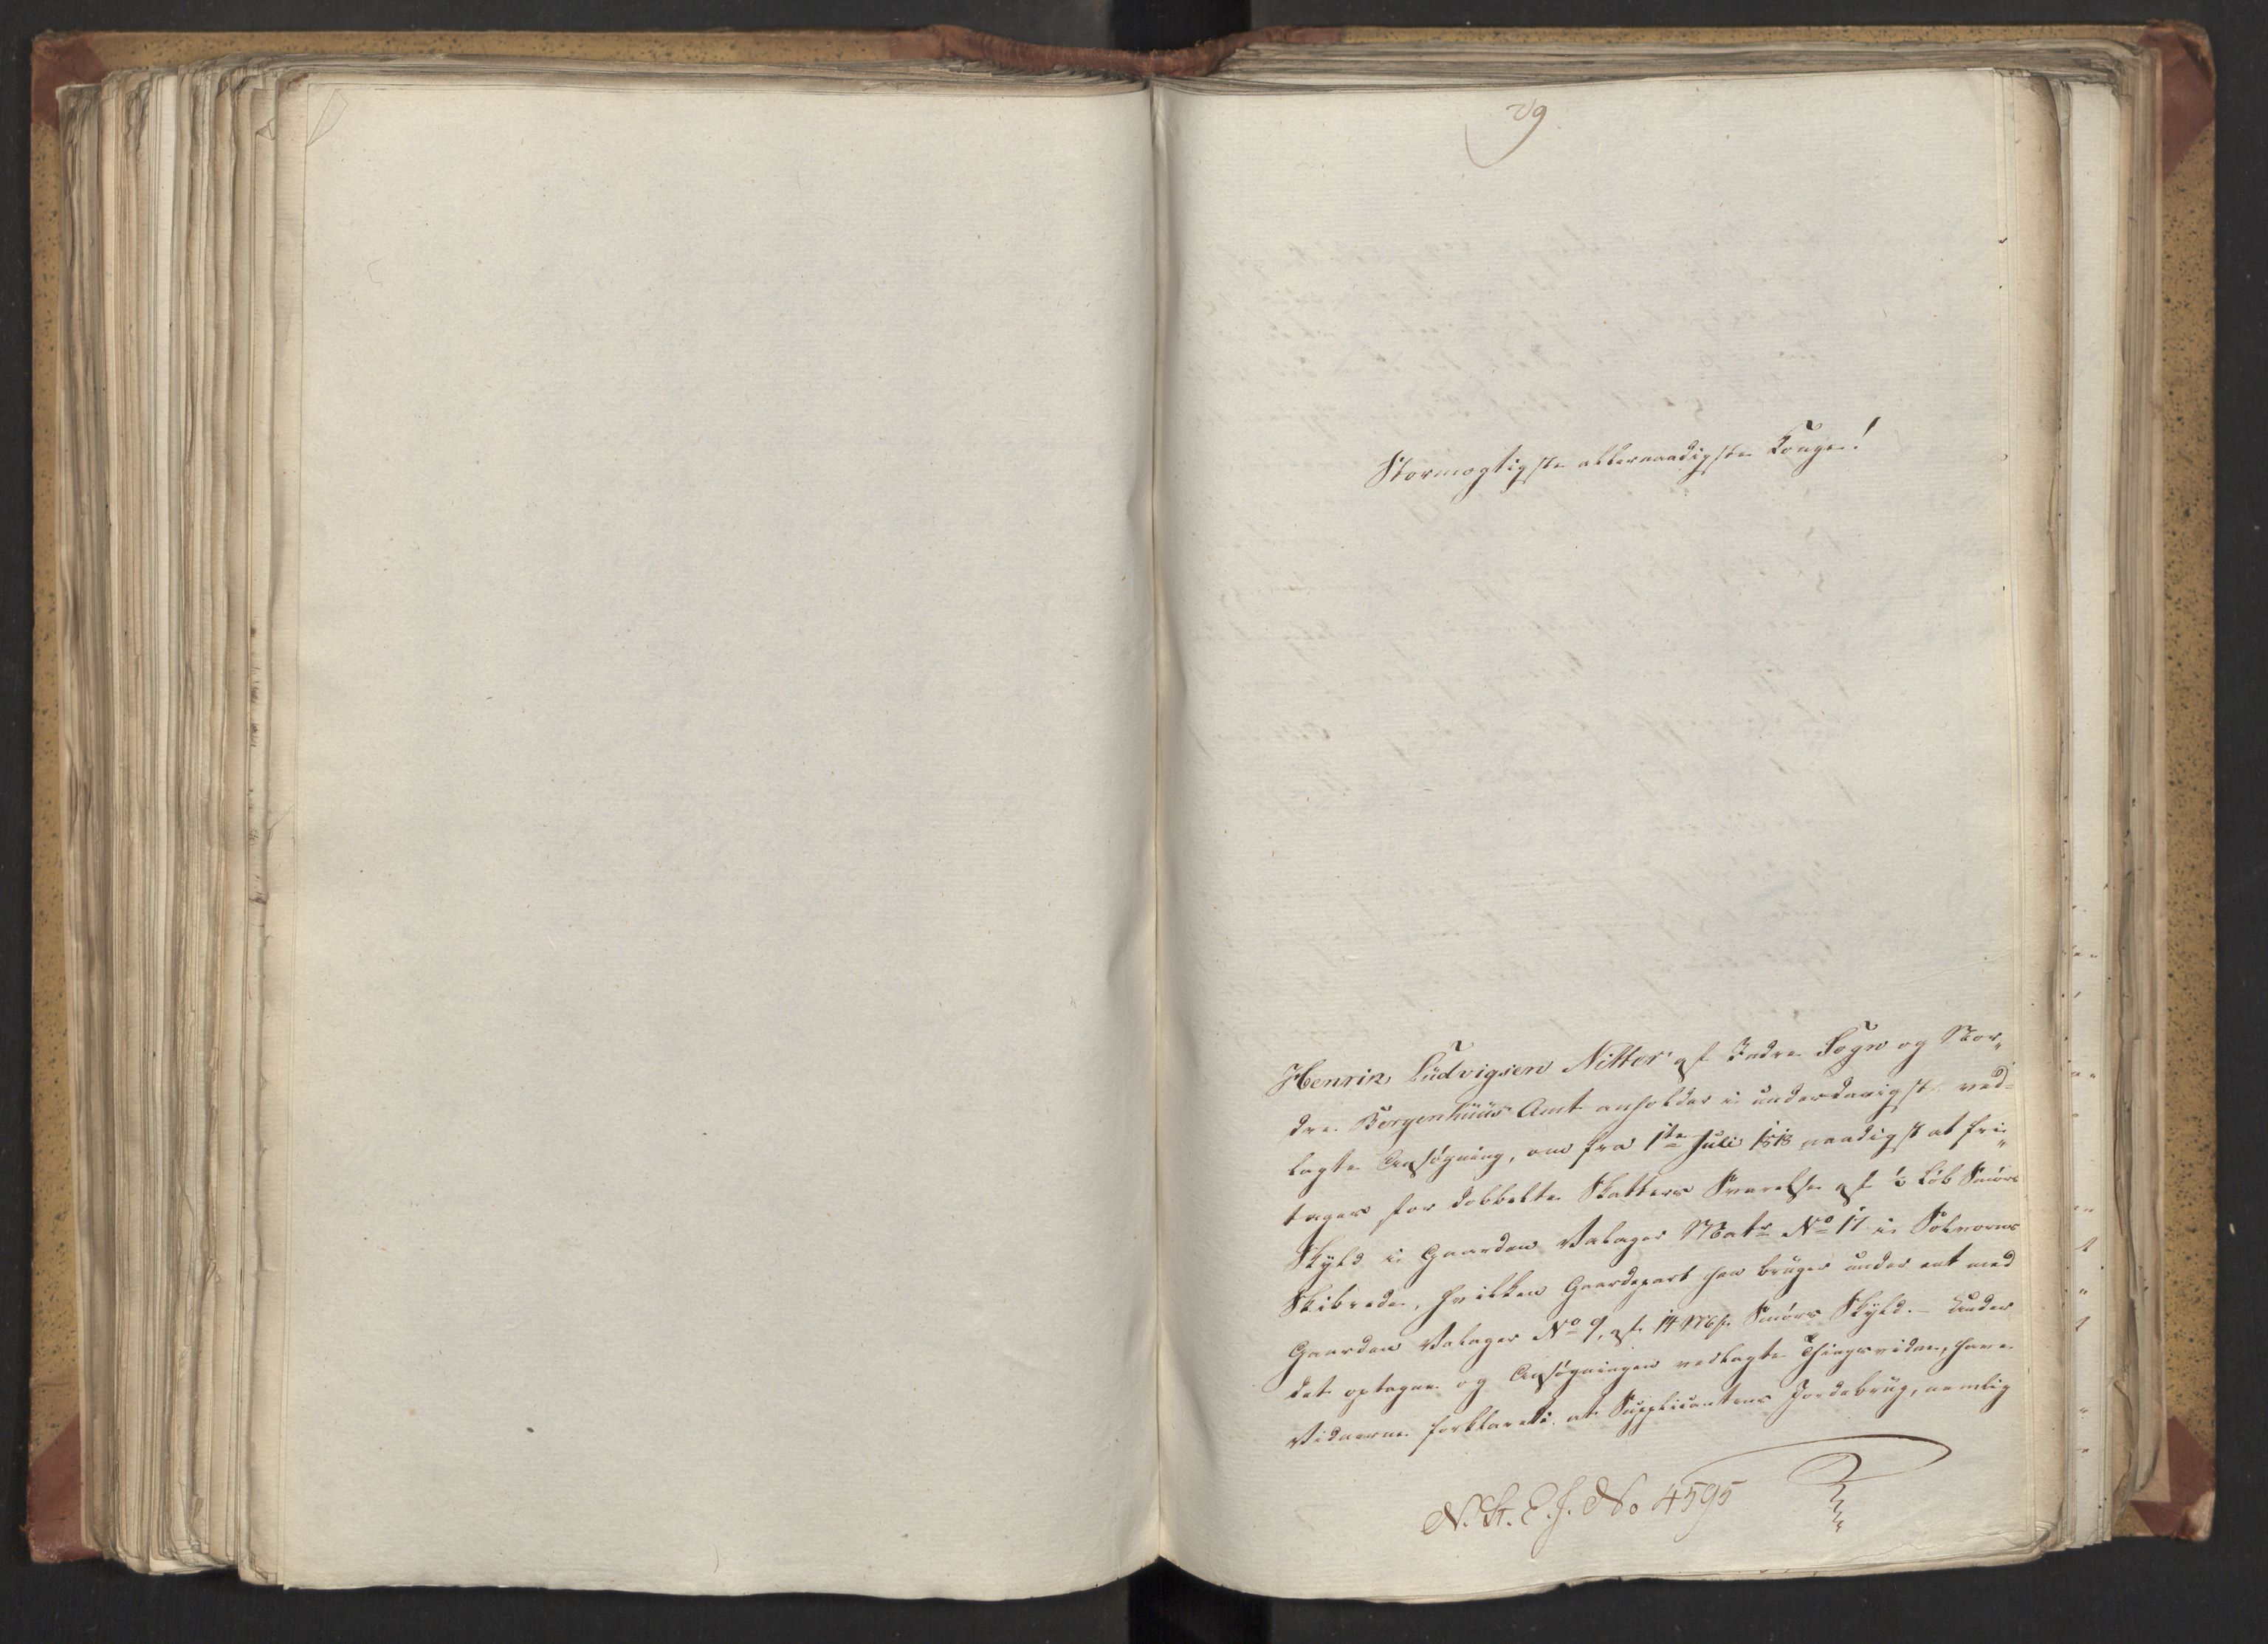 29
Stormægtigste allernaadigste Konge!
Henrik Ludvigsen Nitter af Indre Sogn og Nor„
dre Bergenhuus Amt anholder i underdanigst ved=
lagte Ansøgning, om fra 1ste Juli 1818 naadigst at fri„
tages for dobbelte Skatters Svarelse af ½ Løb Smørs
Skyld i Gaarden Valager Matr No 17 i Solvorns
Skibrede, hvilken Gaardepart han bruger under eet med
Gaarden Valager No 9, af 14 Mrk: Smørs Skyld. – Under
det optagne og Ansøgningen vedlagte Thingsvidne, have
Vidnerne forklaret: at Supplicantens Jordebrug, nemlig
N. St. E. J. No 4595